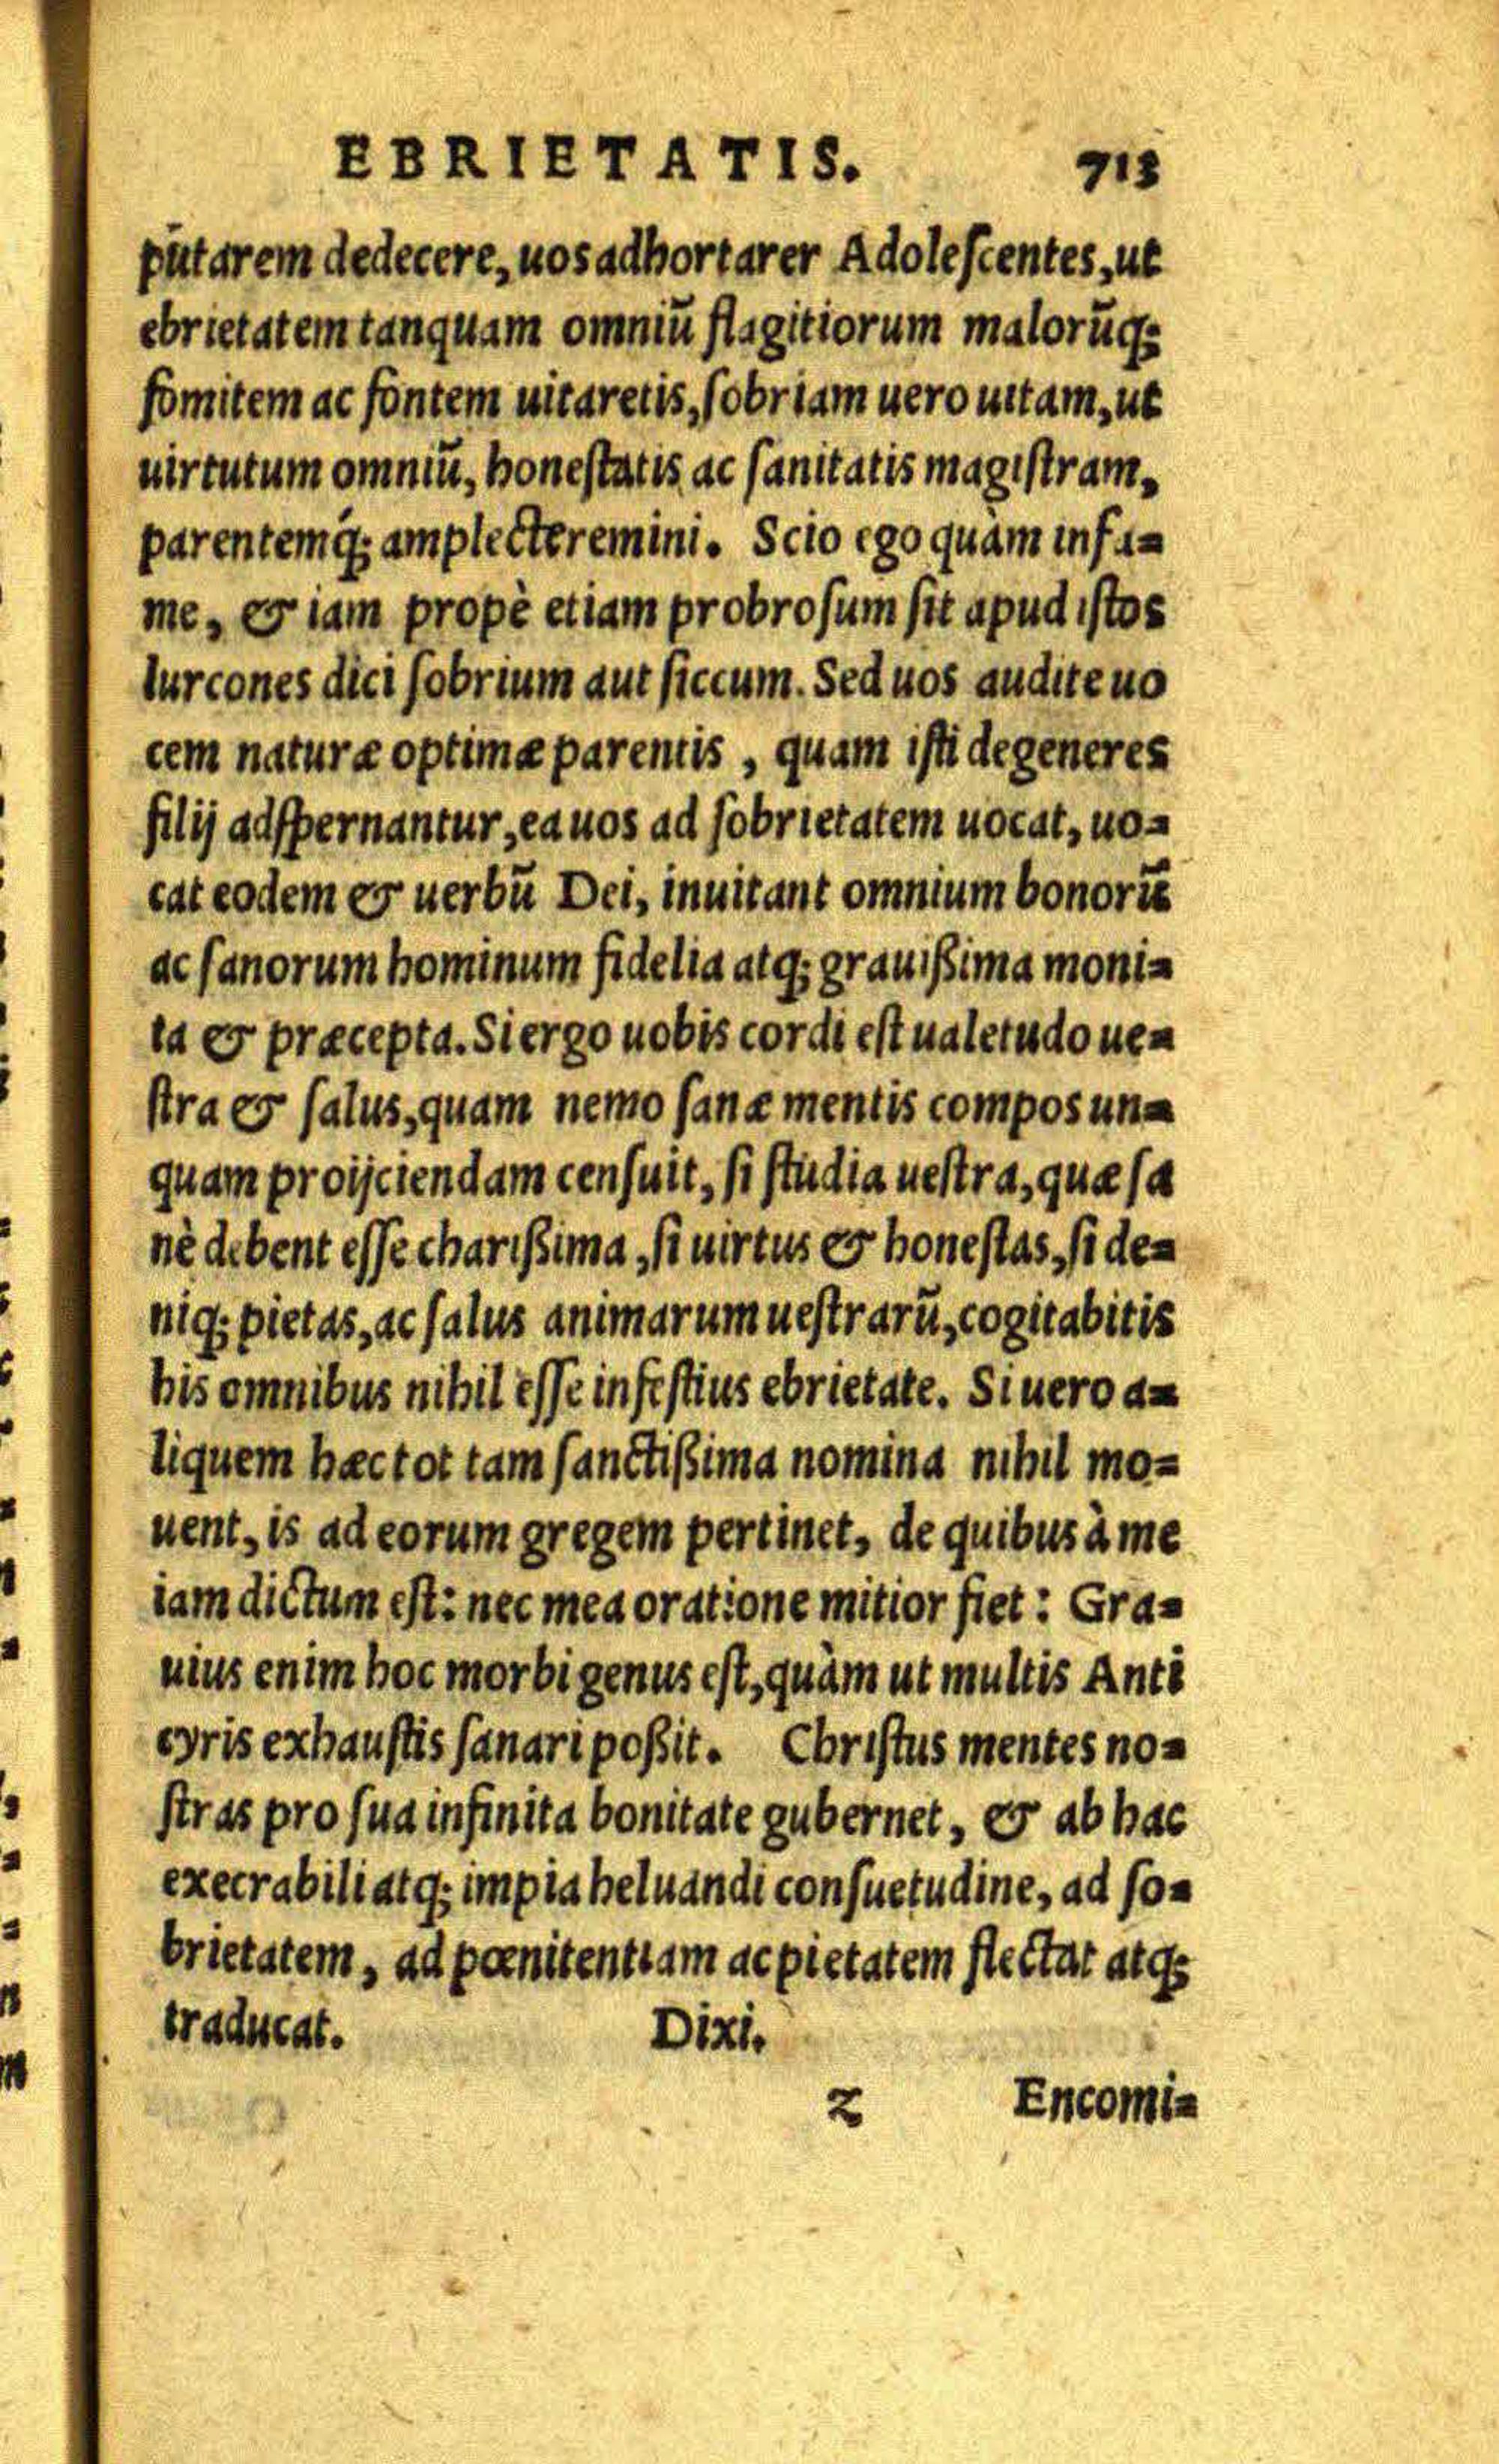 EBRIETATIS. 713
putarem dedecere, uos adhortarer Adoleſcentes, ut
ebrietatem tanquam omniū flagitiorum malorūq;
fomitem ac fontem uitaretis, ſobriam uero uitam, ut
uirtutum omniū, honeſtatis ac ſanitatis magiſtram,
parentemq́; amplecteremini. Scio ego quàm infa=
me, & iam propè etiam probroſum ſit apud iſtos
lurcones dici ſobrium aut ſiccum. Sed uos audite uo
cem naturæ optimæ parentis, quam iſti degeneres
filij adſpernantur, ea uos ad ſobrietatem uocat, uo=
cat eodem & uerbū Dei, inuitant omnium bonorū
ac ſanorum hominum fidelia atq; grauißima moni=
ta & præcepta. Si ergo uobis cordi eſt ualetudo ue=
ſtra & ſalus, quam nemo ſanæ mentis compos un=
quam proijciendam cenſuit, ſi ſtudia ueſtra, quæ ſa
nè debent eſſe charißima, ſi uirtus & honeſtas, ſi de=
niq; pietas, ac ſalus animarum ueſtrarū, cogitabitis
his omnibus nihil eſſe infeſtius ebrietate. Si uero a=
liquem hæc tot tam ſanctißima nomina nihil mo=
uent, is ad eorum gregem pertinet, de quibus à me
iam dictum eſt: nec mea oratione mitior fiet: Gra=
uius enim hoc morbi genus eſt, quàm ut multis Anti
cyris exhauſtis ſanari poßit. Chriſtus mentes no=
ſtras pro ſua infinita bonitate gubernet, & ab hac
execrabili atq; impia heluandi conſuetudine, ad ſo=
brietatem, ad pœnitentiam ac pietatem flectat atq;
traducat. Dixi.
z Encomi=